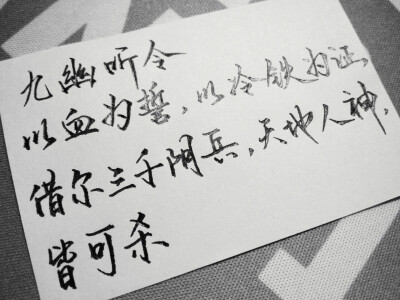 九幽听令
以血为誓,以冷铁为证,
借尔三千阴兵,天地人神,
皆可杀